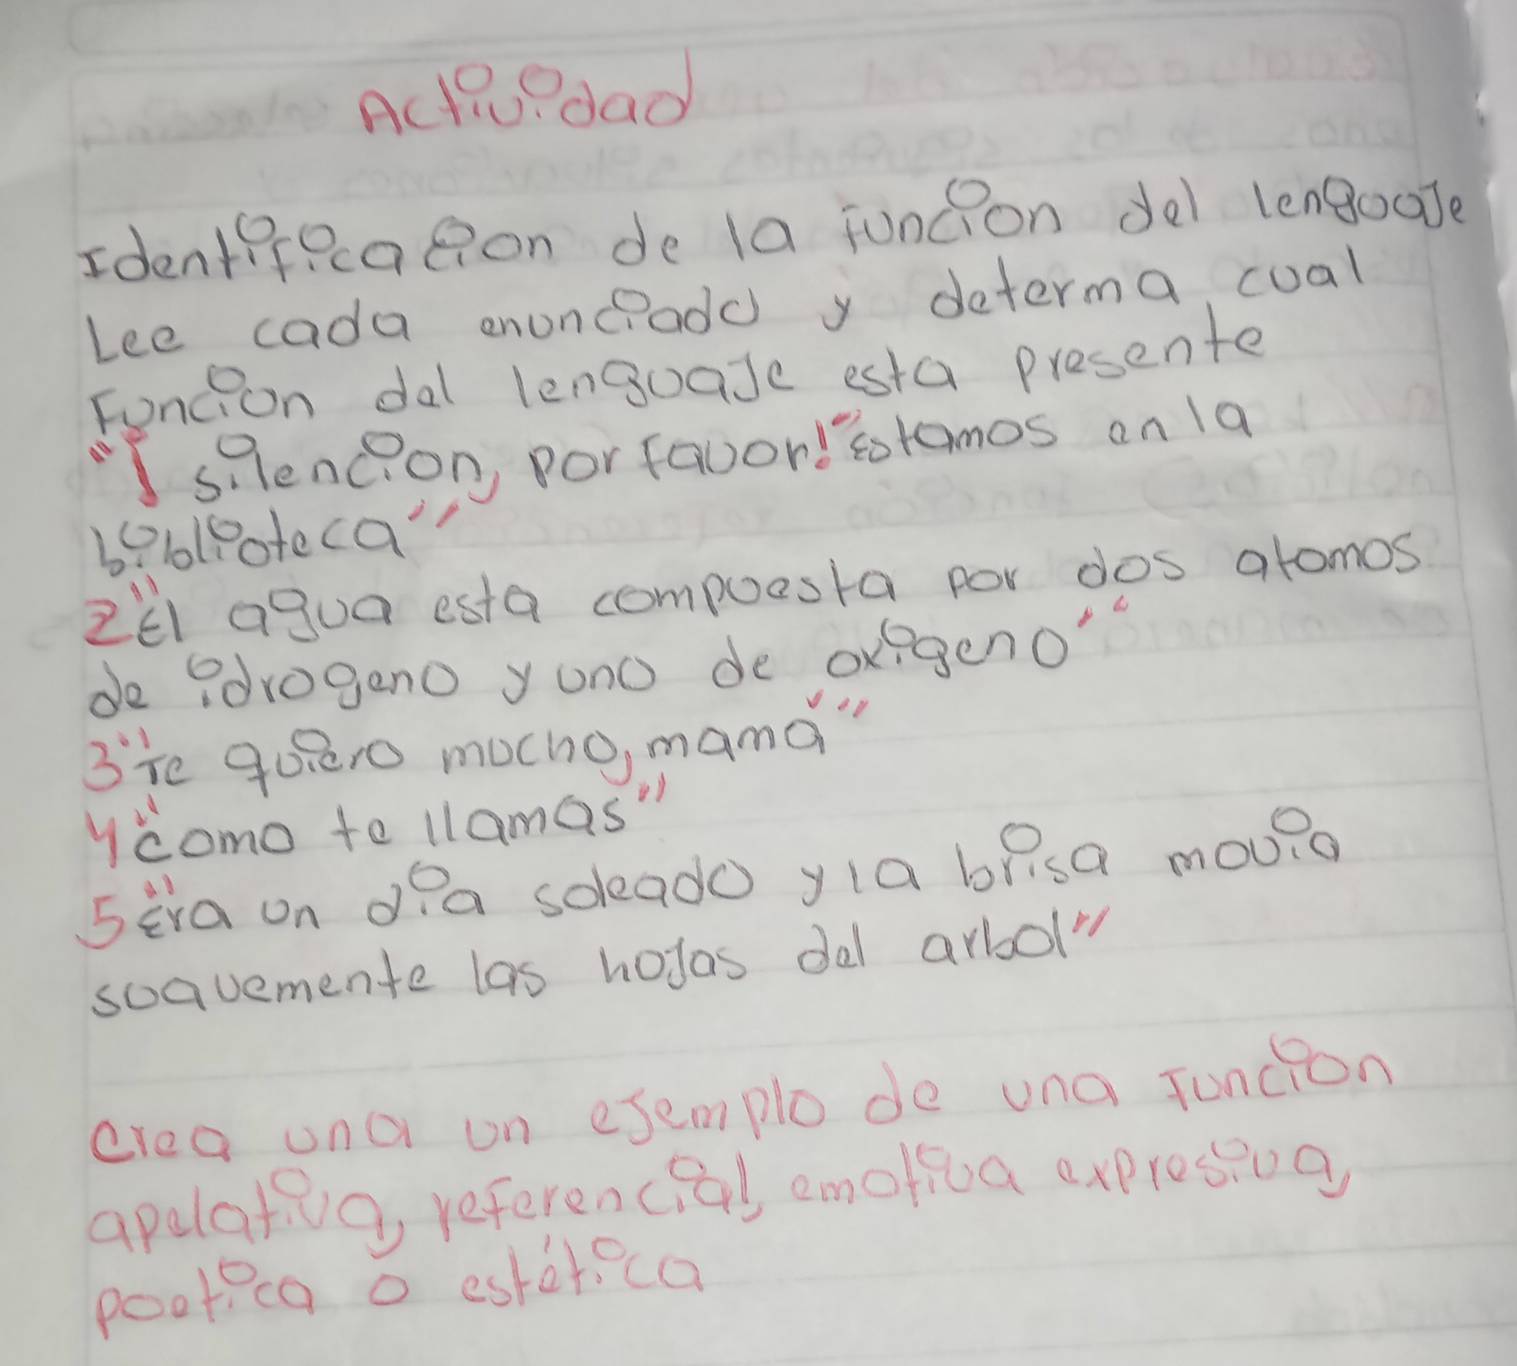 Actividad
Identificacion de la funcion del lenguaje
Lee cada enunciado y determa, cual
Funcion del lenguaje esta presente
"¡ silencion, por favor!" Estamos en la
biblioteca"
2"El agua esta compuesta por dos atomos
de idrogeno y uno de oxigeno"
3"Te quiero mucho, mamá"
4"como te llamas"
5"Era un dia soleado y la brisa movia
suavemente las hojas del arbol"
Crea una un ejemplo de una funcion
apelativa, referencial, emotiva expresiva,
poetica o estética